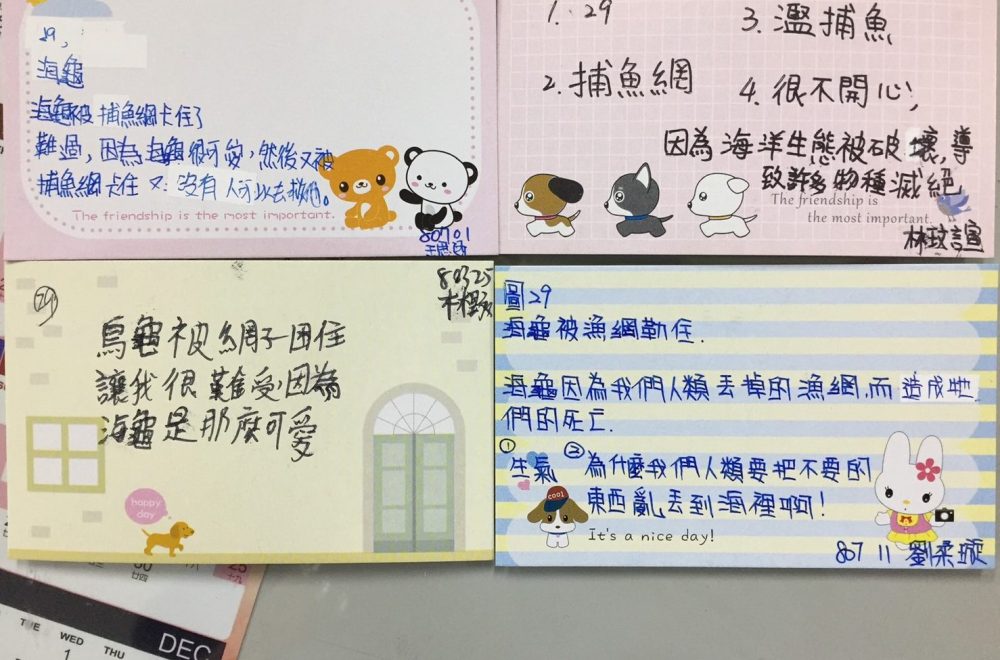 29,
海龜
海龜被捕魚網卡住了
難過,因為海龜很可愛,然後又被
捕魚網卡住又沒有人可以去救牠。
The friendship is the most important.
80701
1. 29
3. 濫捕魚
2. 捕魚網
4. 很不開心,
因為海洋生態被破壞,導
致許多物種滅絕
The friendship is
the most important.
林玟誼
29
80325
烏龜被網子困住
讓我很難受,因為
海龜是那麼可愛
happy
day
圖29
海龜被漁網勒住.
海龜因為我們人類丟掉的漁網,而造成牠
們的死亡.
① 生氣 ② 為什麼我們人類要把不要的
東西亂丟到海裡啊!
cool
It's a nice day!
807 11 劉柔璇
30
廿四
25
十九
TUE WED THU
1
DEC